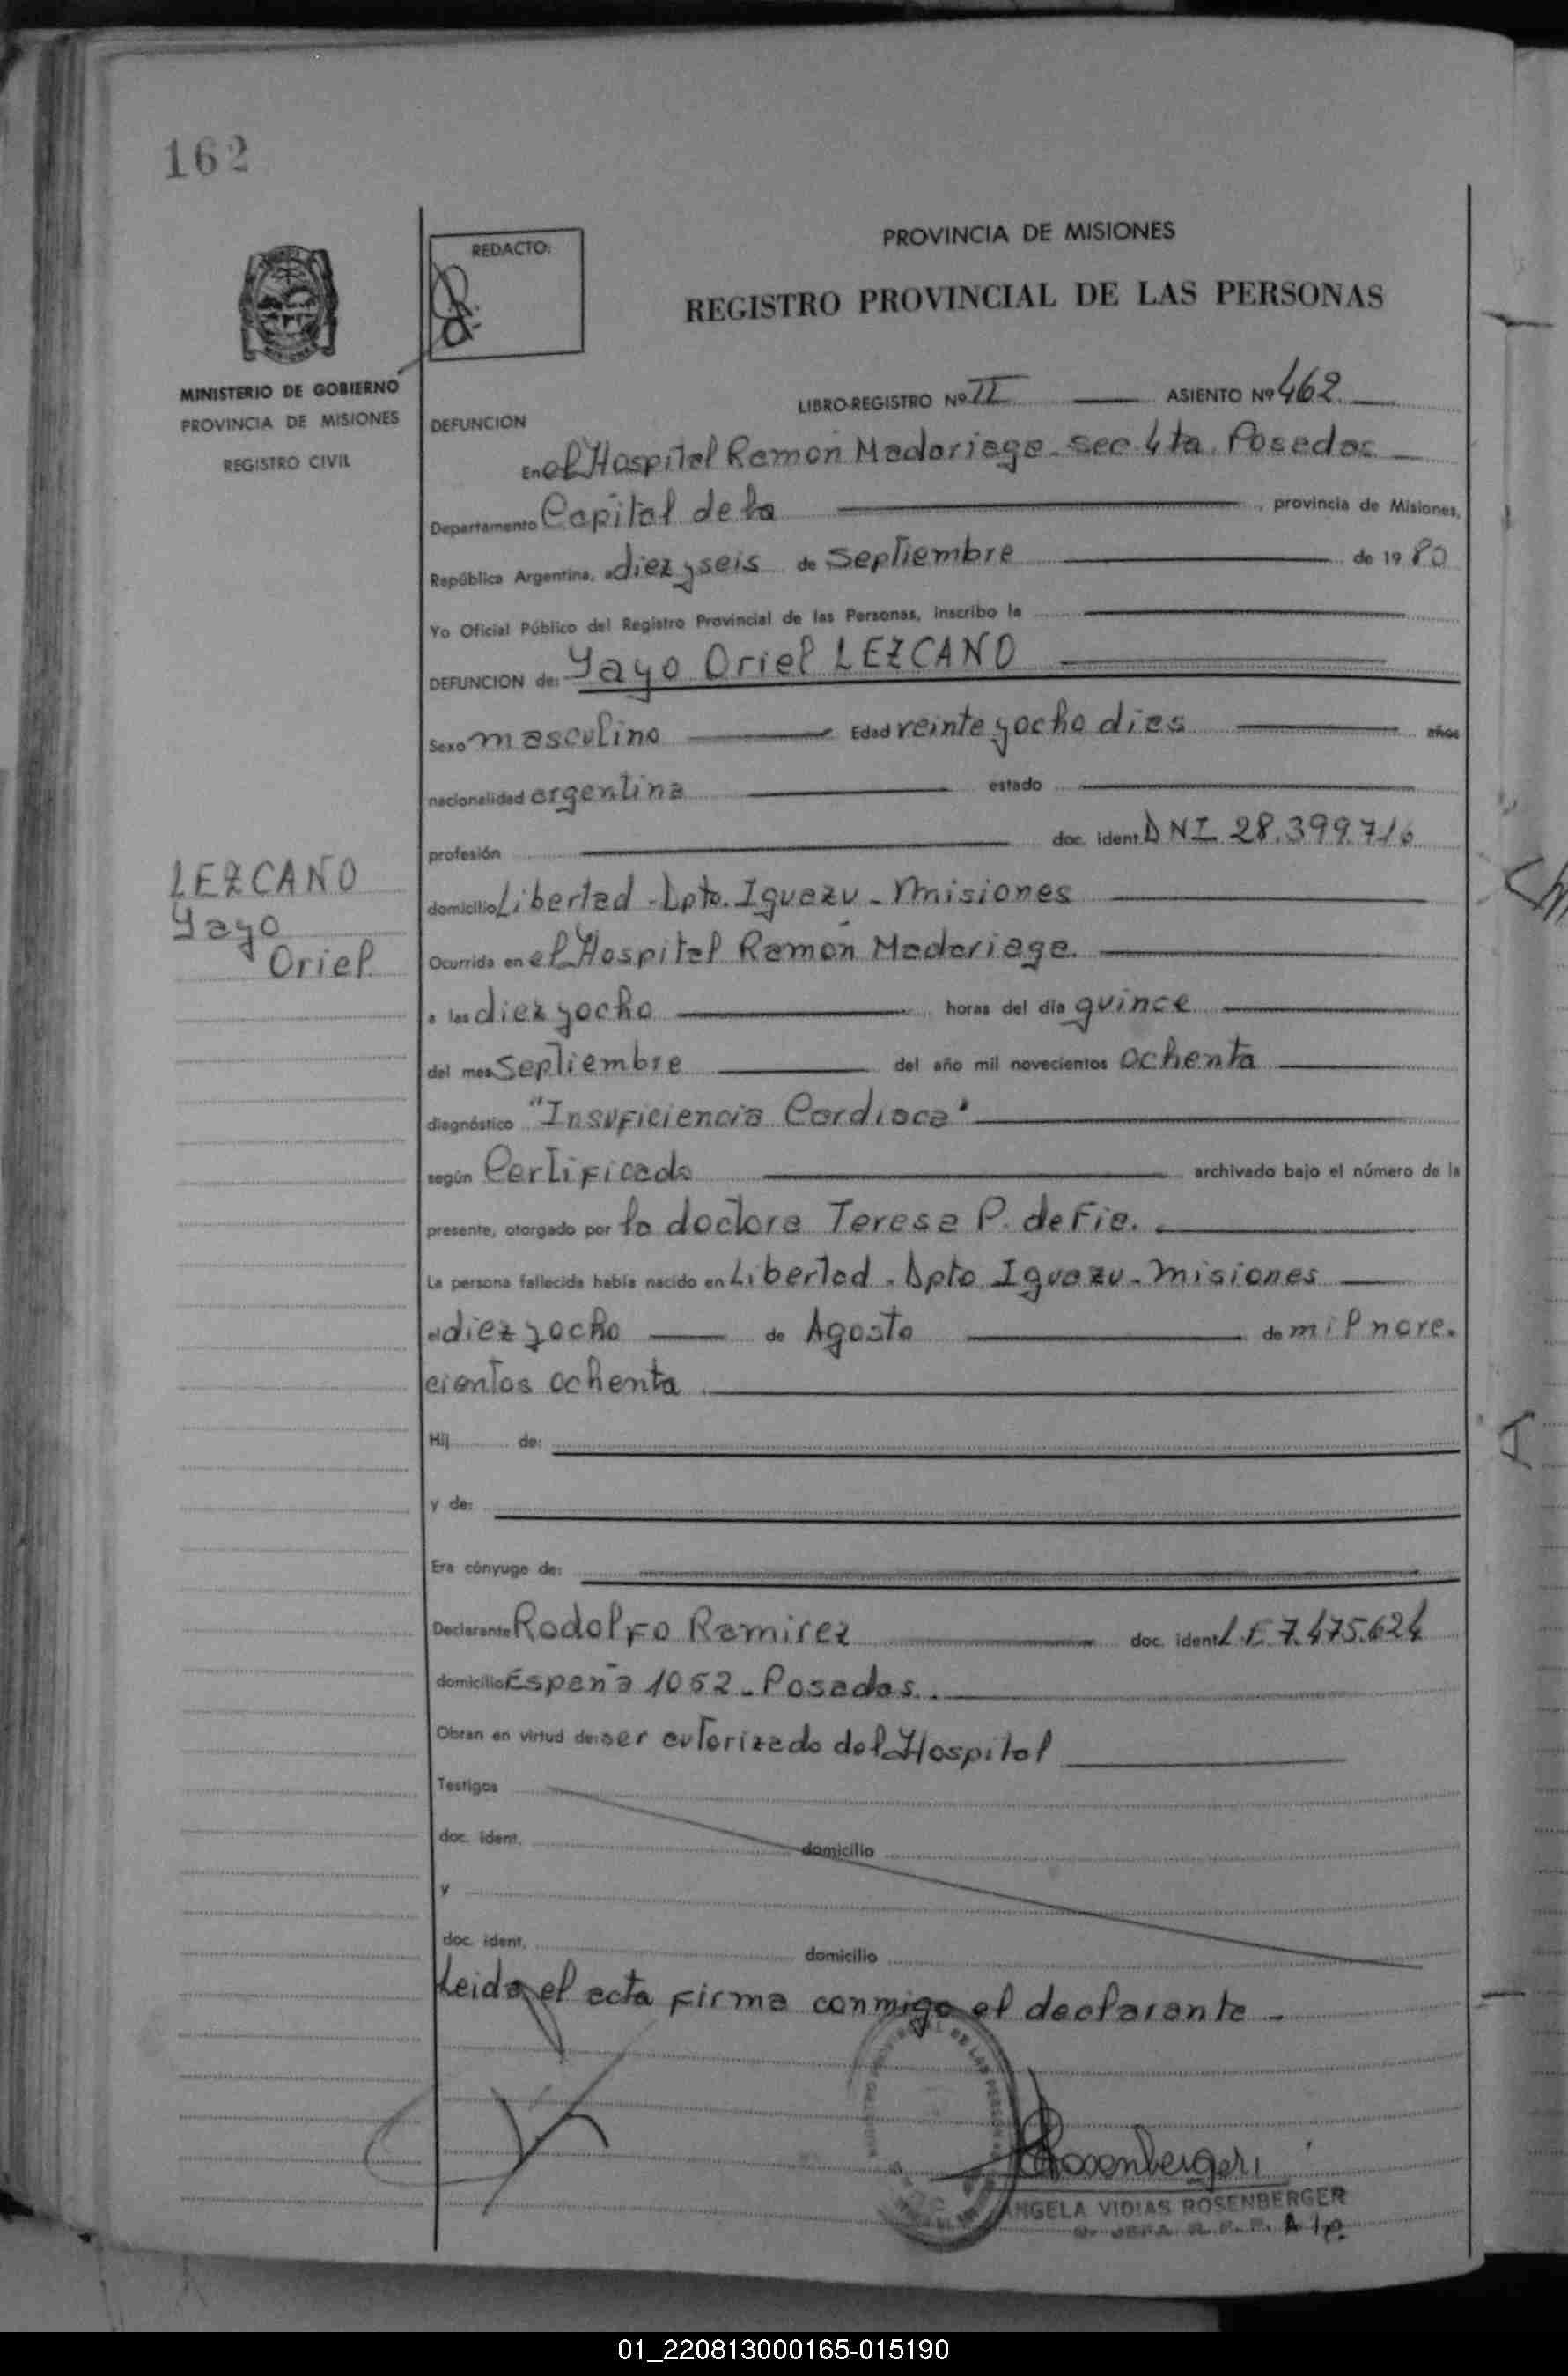 162
PROVINCIA DE MISIONES
REDACTO:
REGISTRO PROVINCIAL DE LAS PERSONAS
MINISTERIO DE GOBIERNO
PROVINCIA DE MISIONES
REGISTRO CIVIL
LIBRO-REGISTRO Nº II ASIENTO Nº 462
DEFUNCION
En el Hospital Ramón Madariaga - sec. 4ta. Posadas
Departamento Capital de la , provincia de Misiones,
República Argentina, a diez y seis de Septiembre de 1980
Yo Oficial Público del Registro Provincial de las Personas, inscribo la
DEFUNCION de: Yayo Oriel LEZCANO
Sexo masculino Edad veinte y ocho dias años
nacionalidad argentina estado
profesión doc. ident. DNI 28.399.716
LEZCANO
Yayo
Oriel
domicilio Libertad - Dpto. Iguazú - Misiones
Ocurrida en el Hospital Ramón Madariaga.
a las diez y ocho horas del día quince
del mes Septiembre del año mil novecientos ochenta
diagnóstico "Insuficiencia Cardiaca"
según Certificado archivado bajo el número de la
presente, otorgado por la doctora Teresa P. de Fia.
La persona fallecida había nacido en Libertad - Dpto Iguazu - Misiones
el diez y ocho de Agosto de mil nove.
cientos ochenta
Hij de:
y de:
Era cónyuge de:
Declarante Rodolfo Ramirez doc. ident. L.E. 7.475.624
domicilio España 1052 - Posadas.
Obran en virtud de: ser autorizado del Hospital
Testigos
doc. ident. domicilio
y
doc. ident. domicilio
Leida el acta firma conmigo el declarante -
Rosenberger
ANGELA VIDIAS ROSENBERGER
JEFA R. P. P. A/c.
01_220813000165-015190